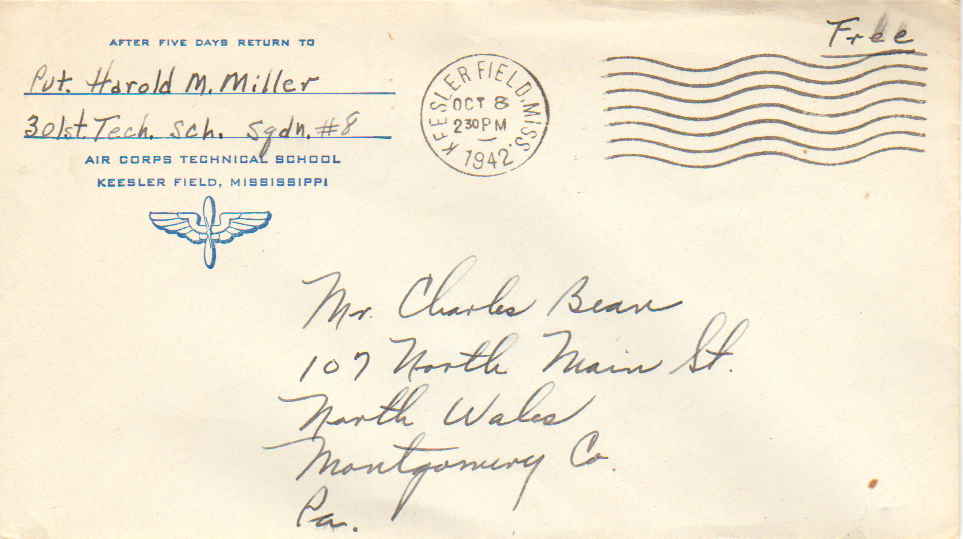 AFTER FIVE DAYS RETURN TO
Pvt. Harold M. Miller
301st. Tech. Sch. Sqdn. #8
AIR CORPS TECHNICAL SCHOOL
KEESLER FIELD, MISSISSIPPI
KEESLER FIELD, MISS.
OCT 8
2 30 PM
1942
Free
Mr. Charles Bean
107 North Main St.
North Wales
Montgomery Co.
Pa.